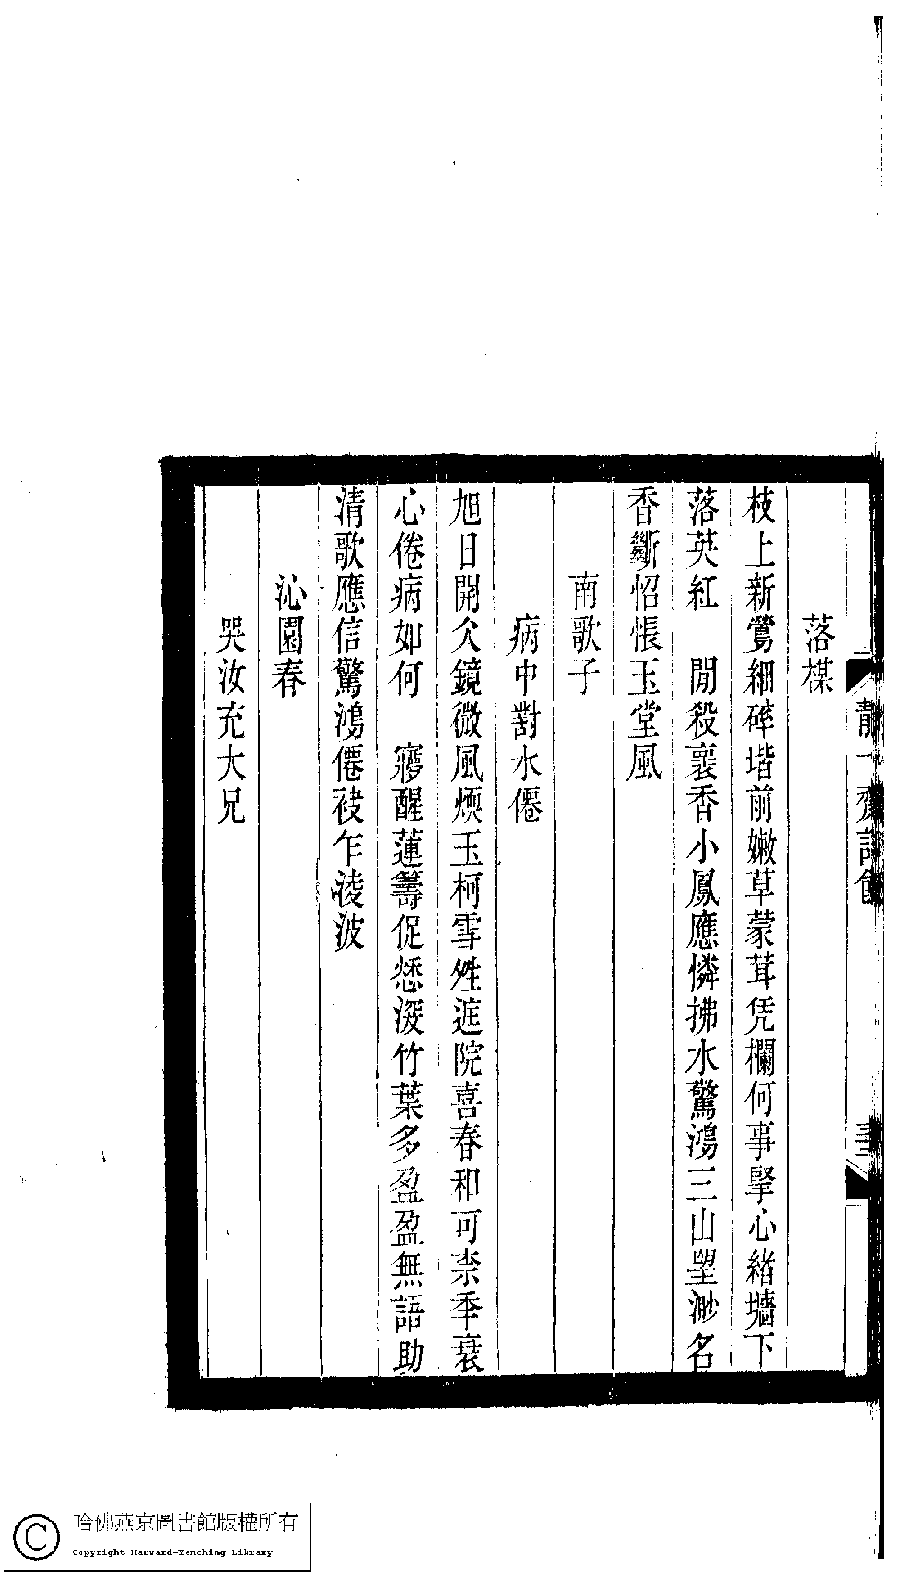 靜一齋詩餘
三十二
落楳
枝上新鶯細碎堦前嫩草蒙茸凭欄何事擊心緒墻下
落英紅　閒殺裛香小鳳應憐拂水驚鴻三山望渺名
香斷怊悵玉堂風
南歌子
病中對水僊
旭日開仌鏡微風煗玉柯雪甡庭院喜春和可柰季衰
心倦病如何　寤醒蓮籌促愁深竹葉多盈盈無語助
清歌應信驚鴻僊袂乍淩波
沁園春
哭汝充大兄
哈佛燕京圖書館版權所有
Copyright Harvard-Yenching Library